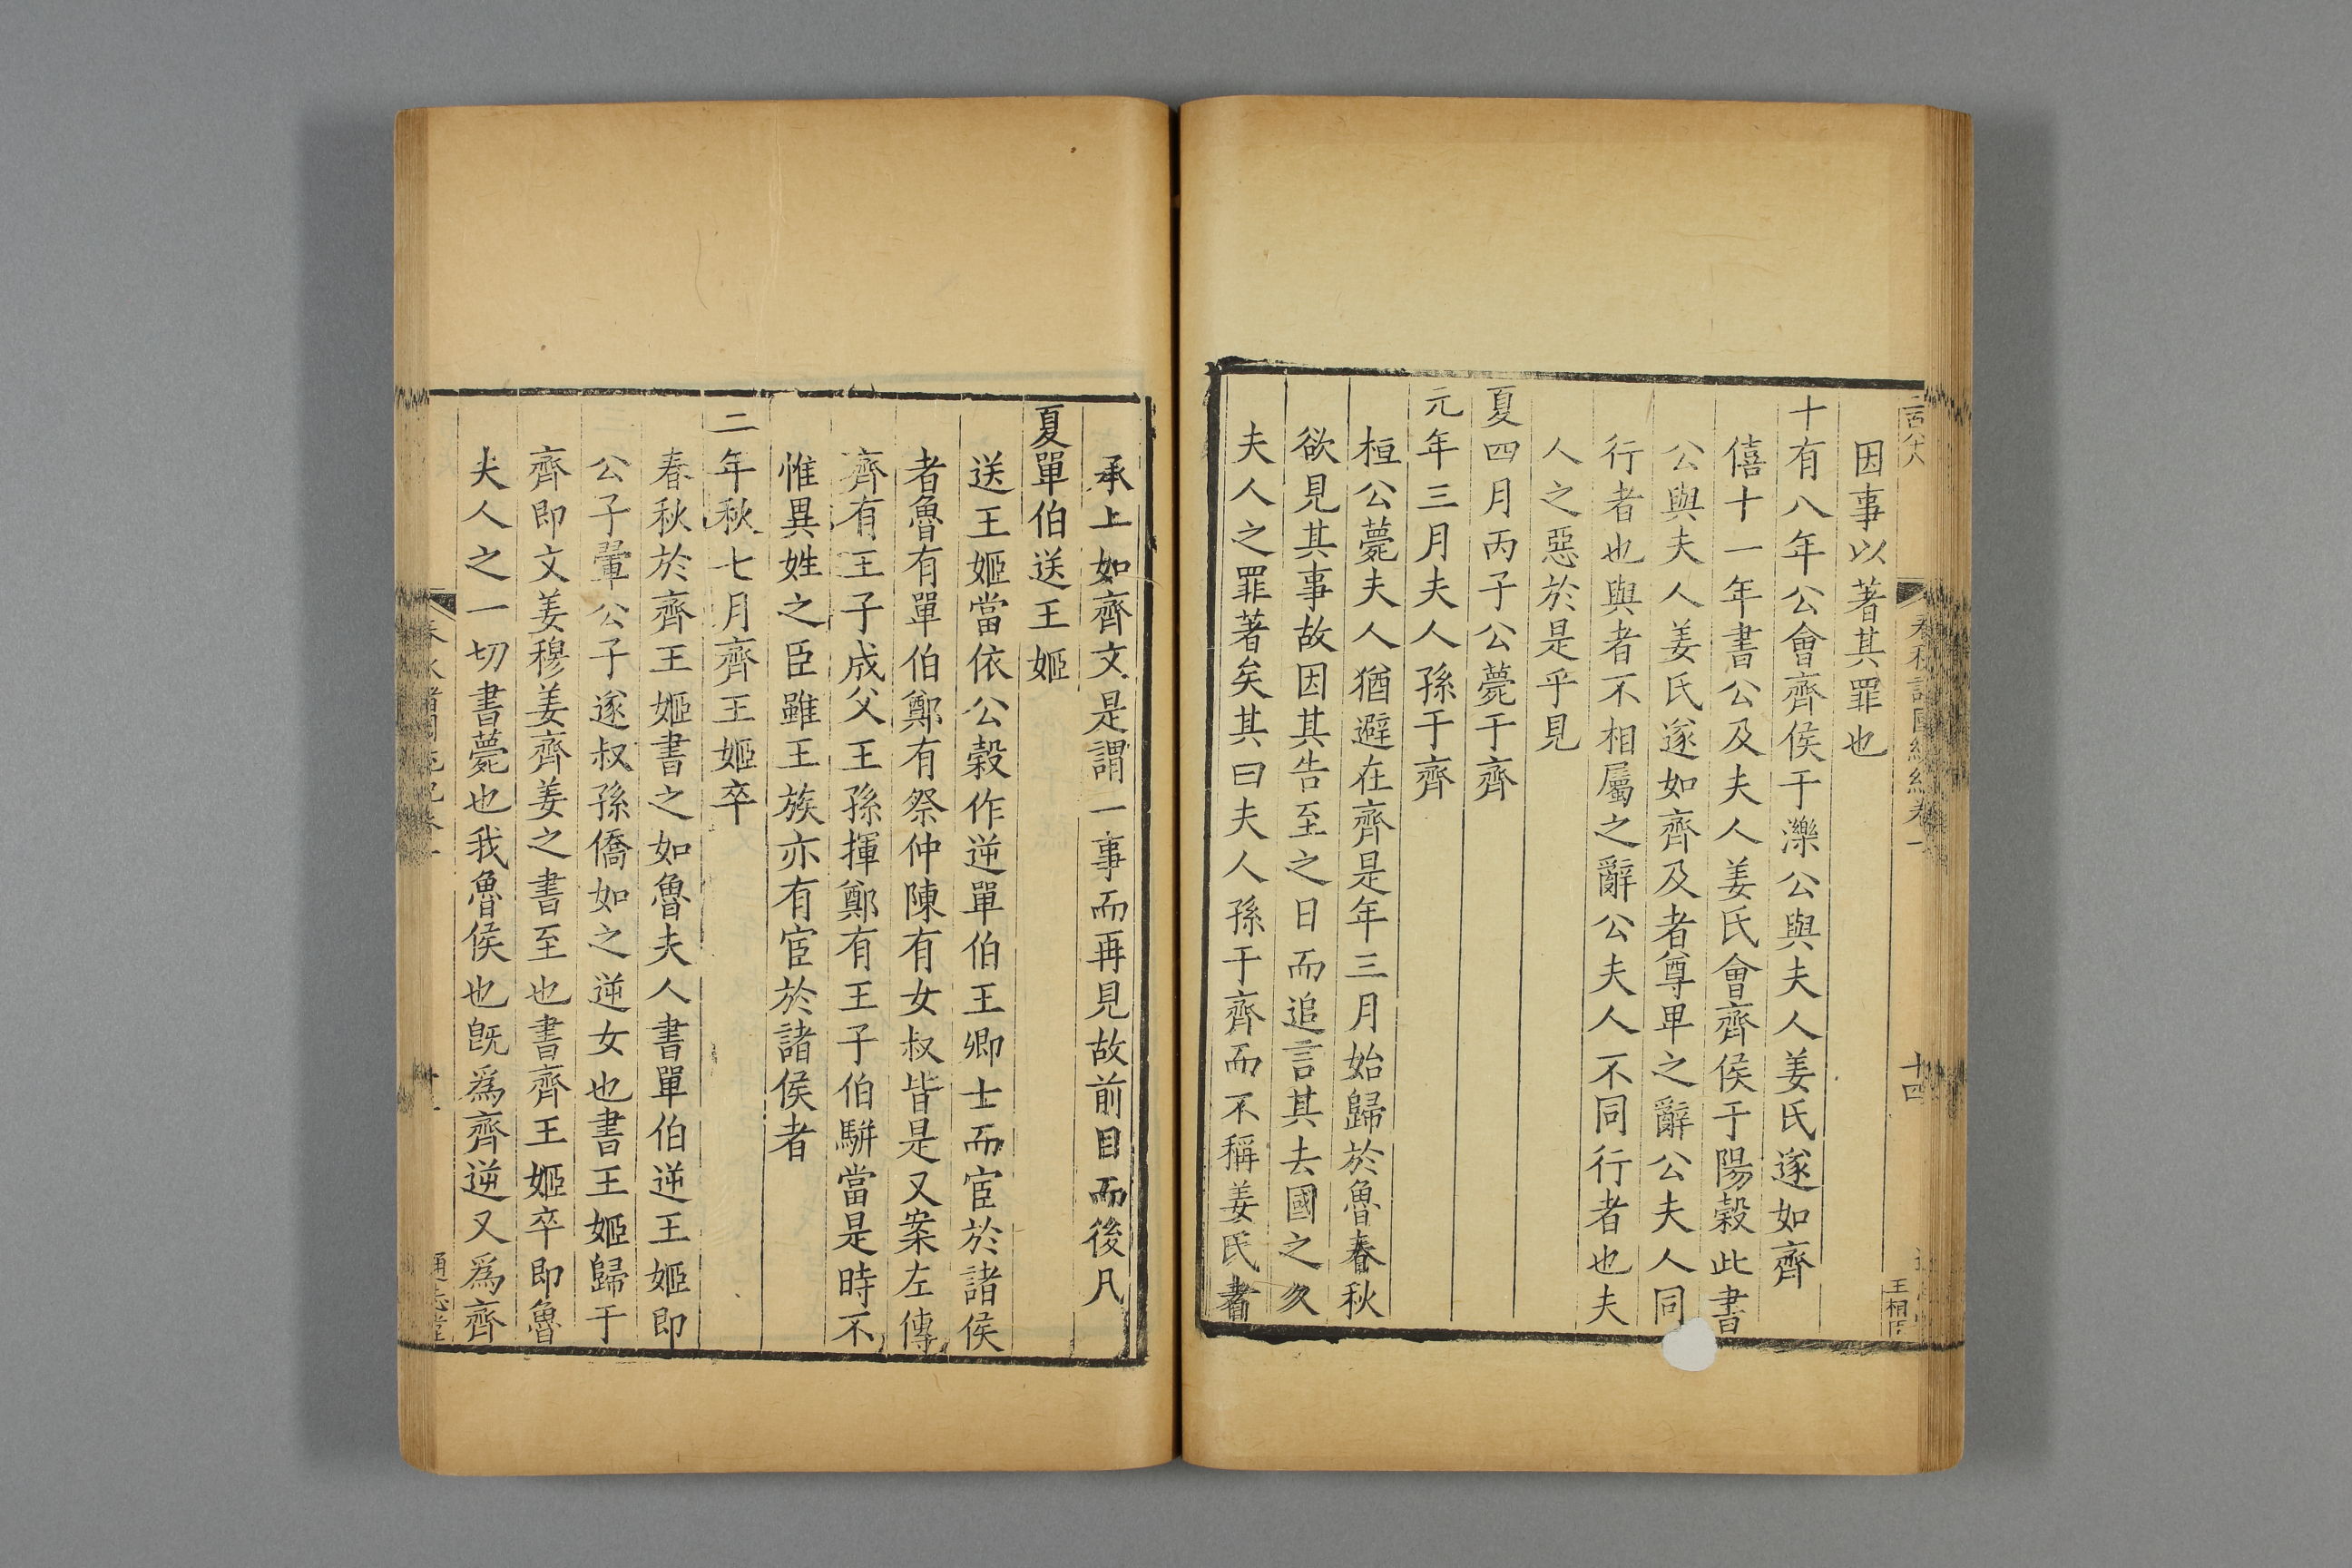 因事以著其罪也
十有八年公會齊侯于濼公與夫人姜氏遂如齊
僖十一年書公及夫人姜氏會齊侯于陽穀此書
公與夫人姜氏遂如齊及者尊卑之辭公夫人同
行者也與者不相屬之辭公夫人不同行者也夫
人之惡於是乎見
夏四月丙子公薨于齊
元年三月夫人孫于齊
桓公薨夫人猶避在齊是年三月始歸於魯春秋
欲見其事故因其告至之日而追言其去國之久
夫人之罪著矣其曰夫人孫于齊而不稱姜氏者
承上如齊文是謂一事而再見故前目而後凡
夏單伯送王姬
送王姬當依公穀作逆單伯王卿士而宦於諸侯
者魯有單伯鄭有祭仲陳有女叔皆是又案左傳
齊有王子成父王孫揮鄭有王子伯駢當是時不
惟異姓之臣雖王族亦有宦於諸侯者
二年秋七月齊王姬卒
春秋於齊王姬書之如魯夫人書單伯逆王姬即
公子翬公子遂叔孫僑如之逆女也書王姬歸于
齊即文姜穆姜齊姜之書至也書齊王姬卒即魯
夫人之一切書薨也我魯侯也旣爲齊逆又爲齊
十四
通志堂